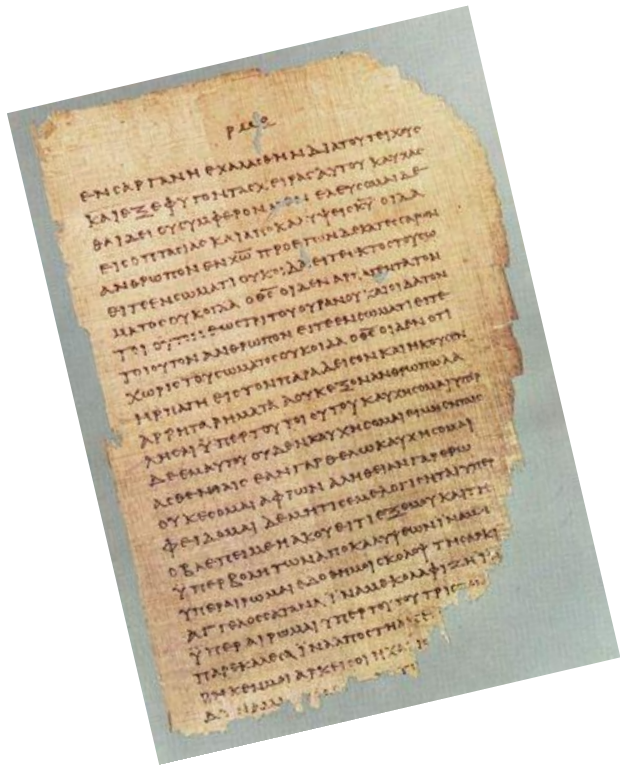 ΕΝ ϹΑΡΓΑΝΗ ΕΧΑΛΑϹΘΗΝ ΔΙΑ ΤΟΥ ΤΕΙΧΟΥϹ
ΚΑΙ ΕΞΕΦΥΓΟΝ ΤΑϹ ΧΕΙΡΑϹ ΑΥΤΟΥ ΚΑΥΧΑϹ
ΘΑΙ ΔΕΙ ΟΥ ϹΥΜΦΕΡΟΝ ΜΕΝ ΕΛΕΥϹΟΜΑΙ ΔΕ
ΕΙϹ ΟΠΤΑϹΙΑϹ ΚΑΙ ΑΠΟΚΑΛΥΨΕΙϹ Κ̅Υ̅ ΟΙΔΑ
ΑΝΘΡΩΠΟΝ ΕΝ Χ̅Ω̅ ΠΡΟ ΕΤΩΝ ΔΕΚΑΤΕϹϹΑΡΩΝ
ΕΙΤΕ ΕΝ ϹΩΜΑΤΙ ΟΥΚ ΟΙΔΑ ΕΙΤΕ ΕΚΤΟϹ ΤΟΥ ϹΩ
ΜΑΤΟϹ ΟΥΚ ΟΙΔΑ Ο Θ̅Ϲ̅ ΟΙΔΕΝ ΑΡΠΑΓΕΝΤΑ ΤΟΝ
ΤΟΙΟΥΤΟΝ ΕΩϹ ΤΡΙΤΟΥ ΟΥΡΑΝΟΥ ΚΑΙ ΟΙΔΑ ΤΟΝ
ΤΟΙΟΥΤΟΝ ΑΝΘΡΩΠΟΝ ΕΙΤΕ ΕΝ ϹΩΜΑΤΙ ΕΙΤΕ
ΧΩΡΙϹ ΤΟΥ ϹΩΜΑΤΟϹ ΟΥΚ ΟΙΔΑ Ο Θ̅Ϲ̅ ΟΙΔΕΝ ΟΤΙ
ΗΡΠΑΓΗ ΕΙϹ ΤΟΝ ΠΑΡΑΔΕΙϹΟΝ ΚΑΙ ΗΚΟΥϹΕΝ
ΑΡΡΗΤΑ ΡΗΜΑΤΑ Α ΟΥΚ ΕΞΟΝ ΑΝΘΡΩΠΩ ΛΑ
ΛΗϹΑΙ ΫΠΕΡ ΤΟΥ ΤΟΙΟΥΤΟΥ ΚΑΥΧΗϹΟΜΑΙ ΥΠΕΡ
ΔΕ ΕΜΑΥΤΟΥ ΟΥΔΕΝ ΚΑΥΧΗϹΟΜΑΙ ΕΙ ΜΗ ΕΝ ΤΑΙϹ
ΑϹΘΕΝΙΑΙϹ ΕΑΝ ΓΑΡ ΘΕΛΩ ΚΑΥΧΗϹΟΜΑΙ
ΟΥΚ ΕϹΟΜΑΙ ΑΦΡΩΝ ΑΛΗΘΕΙΑΝ ΓΑΡ ΕΡΩ
ΦΕΙΔΟΜΑΙ ΔΕ ΜΗ ΤΙϹ ΕΜΕ ΛΟΓΙϹΗΤΑΙ ΥΠΕΡ
Ο ΒΛΕΠΕΙ ΜΕ Η ΑΚΟΥΕΙ ΤΙ ΕΞ ΕΜΟΥ ΚΑΙ ΤΗ
ΫΠΕΡΒΟΛΗ ΤΩΝ ΑΠΟΚΑΛΥΨΕΩΝ ΙΝΑ ΜΗ
ΥΠΕΡΑΙΡΩΜΑΙ ΕΔΟΘΗ ΜΟΙ ϹΚΟΛΟΨ ΤΗ ϹΑΡΚΙ
ΑΓΓΕΛΟϹ ϹΑΤΑΝΑ ΪΝΑ ΜΕ ΚΟΛΑΦΙΖΗ
ΫΠΕΡΑΙΡΩΜΑΙ ΥΠΕΡ ΤΟΥΤΟΥ ΤΡΙϹ
ΠΑΡΕΚΑΛΕϹΑ ΪΝΑ ΑΠΟϹΤΗ
ΡΗΚΕΝ ΜΟΙ ΑΡΚΕΙ ϹΟΙ Η